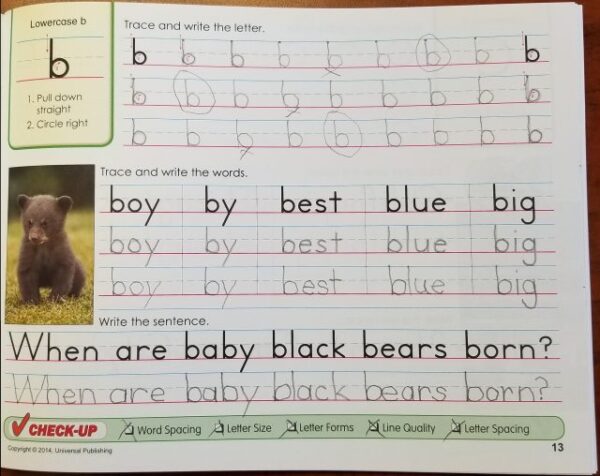 Lowercase b
b
1. Pull down
straight
2. Circle right
Trace and write the letter.
b b b b b b b b b
b b b b b b b b b
b b b b b b b b b
Trace and write the words.
boy by best blue big
boy by best blue big
boy by best blue big
Write the sentence.
When are baby black bears born?
When are baby black bears born?
CHECK-UP Word Spacing Letter Size Letter Forms Line Quality Letter Spacing
Copyright © 2014, Universal Publishing
13